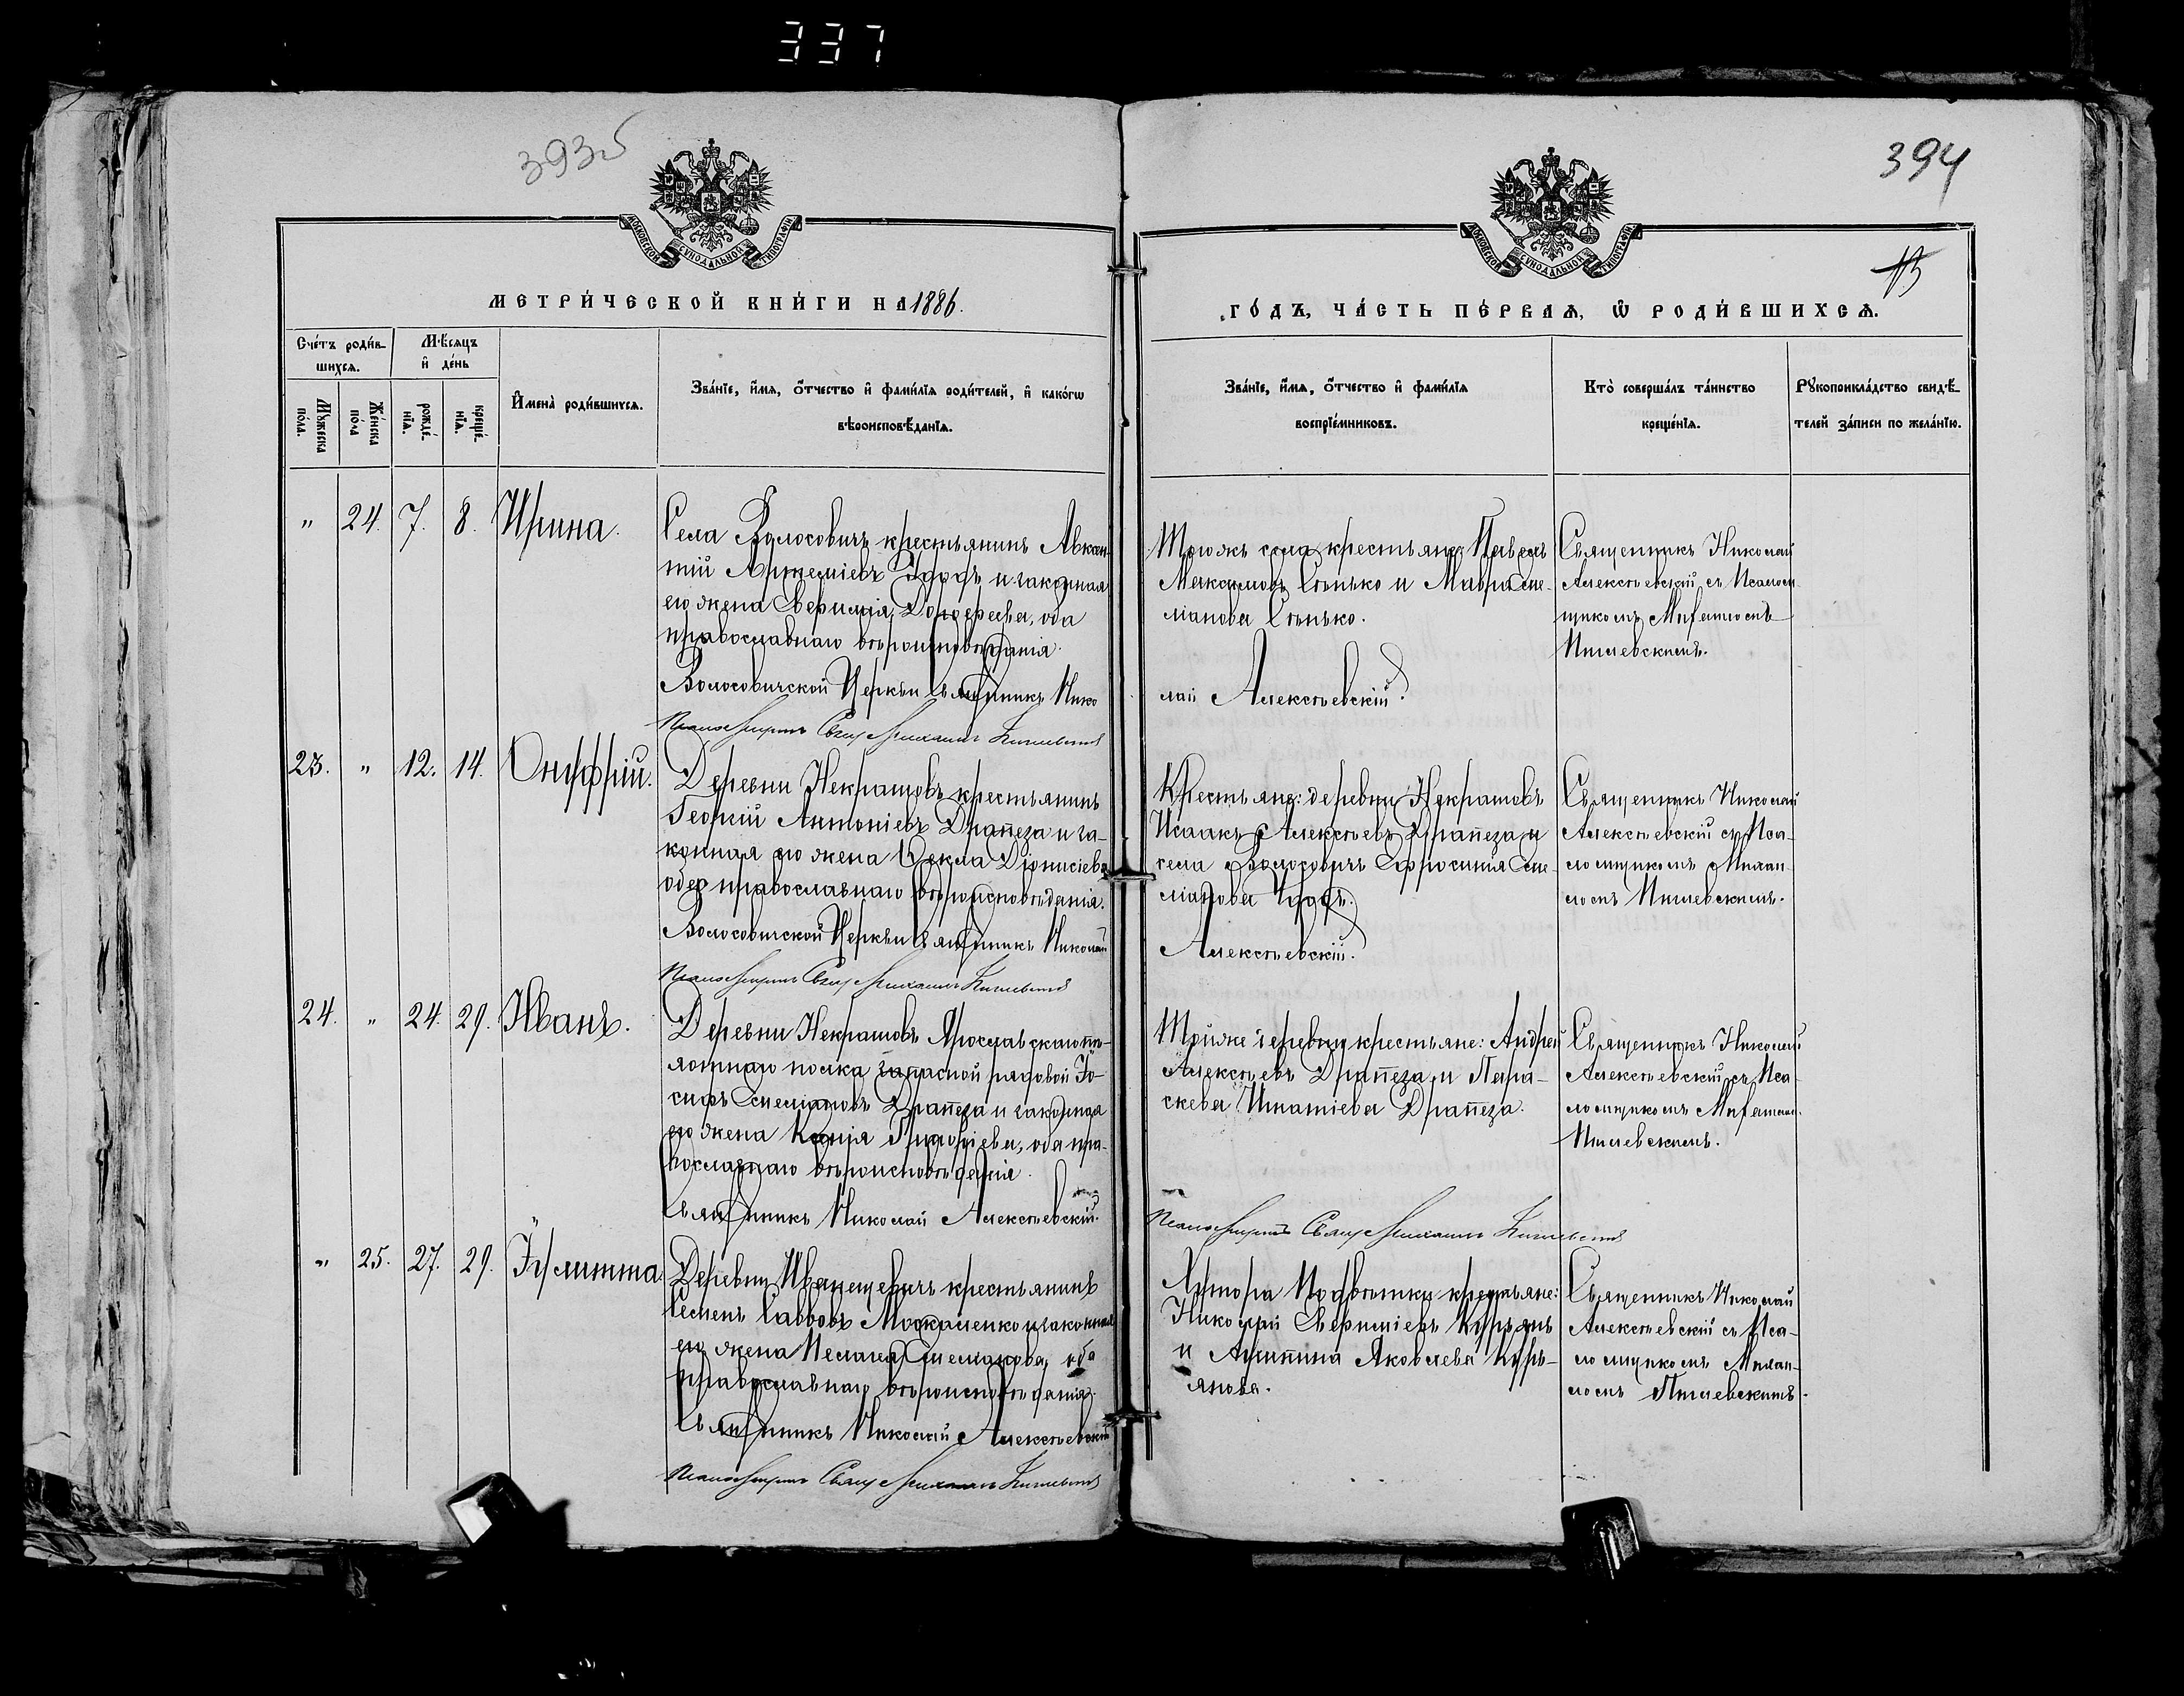 337
393б
394
МОСКОВСКОЙ СѴНОДАЛЬНОЙ ТИПОГРАФІИ
МОСКОВСКОЙ СѴНОДАЛЬНОЙ ТИПОГРАФІИ
МЕТРИ́ЧЕСКОЙ КНИ́ГИ НА 1886.
.ГО́ДЪ, ЧА́СТЬ ПЕ́РВАѦ, Ѡ҆ РОДИ́ВШИХСѦ.
Сче́тъ роди́в-
шихсѧ.
Мꙋ́жеска по́ла.
Же́нска по́ла
Мѣ́сѧцъ
и҆ де́нь
рожде́-нїѧ.
креще́-нїѧ.
И҆мена̀ роди́вшихсѧ.
Зва́нїе, и҆́мѧ, ѻ҆́тчество и҆ фами́лїѧ роди́телей, и҆ како́гѡ
вѣроисповѣ́данїѧ.
Зва́нїе, и҆́мѧ, ѻ҆́тчество и҆ фами́лїѧ
воспрїе́мниковъ.
Кто̀ соверша́лъ та́инство
креще́нїѧ.
Рꙋкоприкла́дство свидѣ́-
телей за́писи по жела́нїю.
" 24. 7. 8. Ирина.
Села Волосовичъ крестьянинъ Авксен-
тій Артеміевъ и законная
его жена Доροфеева, оба
православнаго вѣроисповѣданія.
Волосовичской Церкви Священникъ Нико
лай Алексѣевскій.
Тогожъ села крестьяне: Павелъ
Максимовъ Сѣнько и Мавра Еме-
ліанова Сѣнько.
Священникъ Николай
Алексѣевскій съ Псалом-
щикомъ
23. " 12. 14. Онуфрій.
Деревни Некрашовъ крестьянинъ
Георгій Антоніевъ Драпеза и за-
конная его жена Ѳекла Діонисіева
оба православнаго вѣроисповѣданія.
Волосовичской Церкви Священникъ Николай
Алексѣевскій.
Крестьяне: деревни Некрашовъ
Исаакъ Алексѣевъ Драпеза и
села Волосовичъ Ефросинія Еме-
ліанова
Священникъ Николай
Алексѣевскій съ Пса-
ломщикомъ Михаи-
ломъ
24. " 24. 29. Иванъ.
Деревни Некрашовъ Ярославскаго пѣ-
хотнаго полка запасной рядовой Іо-
сифъ Емеліановъ Драпеза и законная
его жена Ксенія Григоріева, оба пра-
вославнаго вѣроисповѣданія.
Священникъ Николай Алексѣевскій.
Тойже деревни крестьяне: Андрей
Алексѣевъ Драпеза и Пара-
скева Игнатіева Драпеза.
Священникъ Николай
Алексѣевскій съ Пса-
ломщикомъ
" 25. 27. 29. Іулитта.
Деревни Иванищевичъ крестьянинъ
Семенъ Саввовъ Москаленко и законная
его жена Пелагея Емеліанова, оба
православнаго вѣроисповѣданія.
Священникъ Николай Алексѣевскій
Хутора крестьяне:
Николай Курьянъ
и Агрипина Яковлева Курь-
янова.
Священникъ Николай
Алексѣевскій съ Пса-
ломщикомъ Михаи-
ломъ